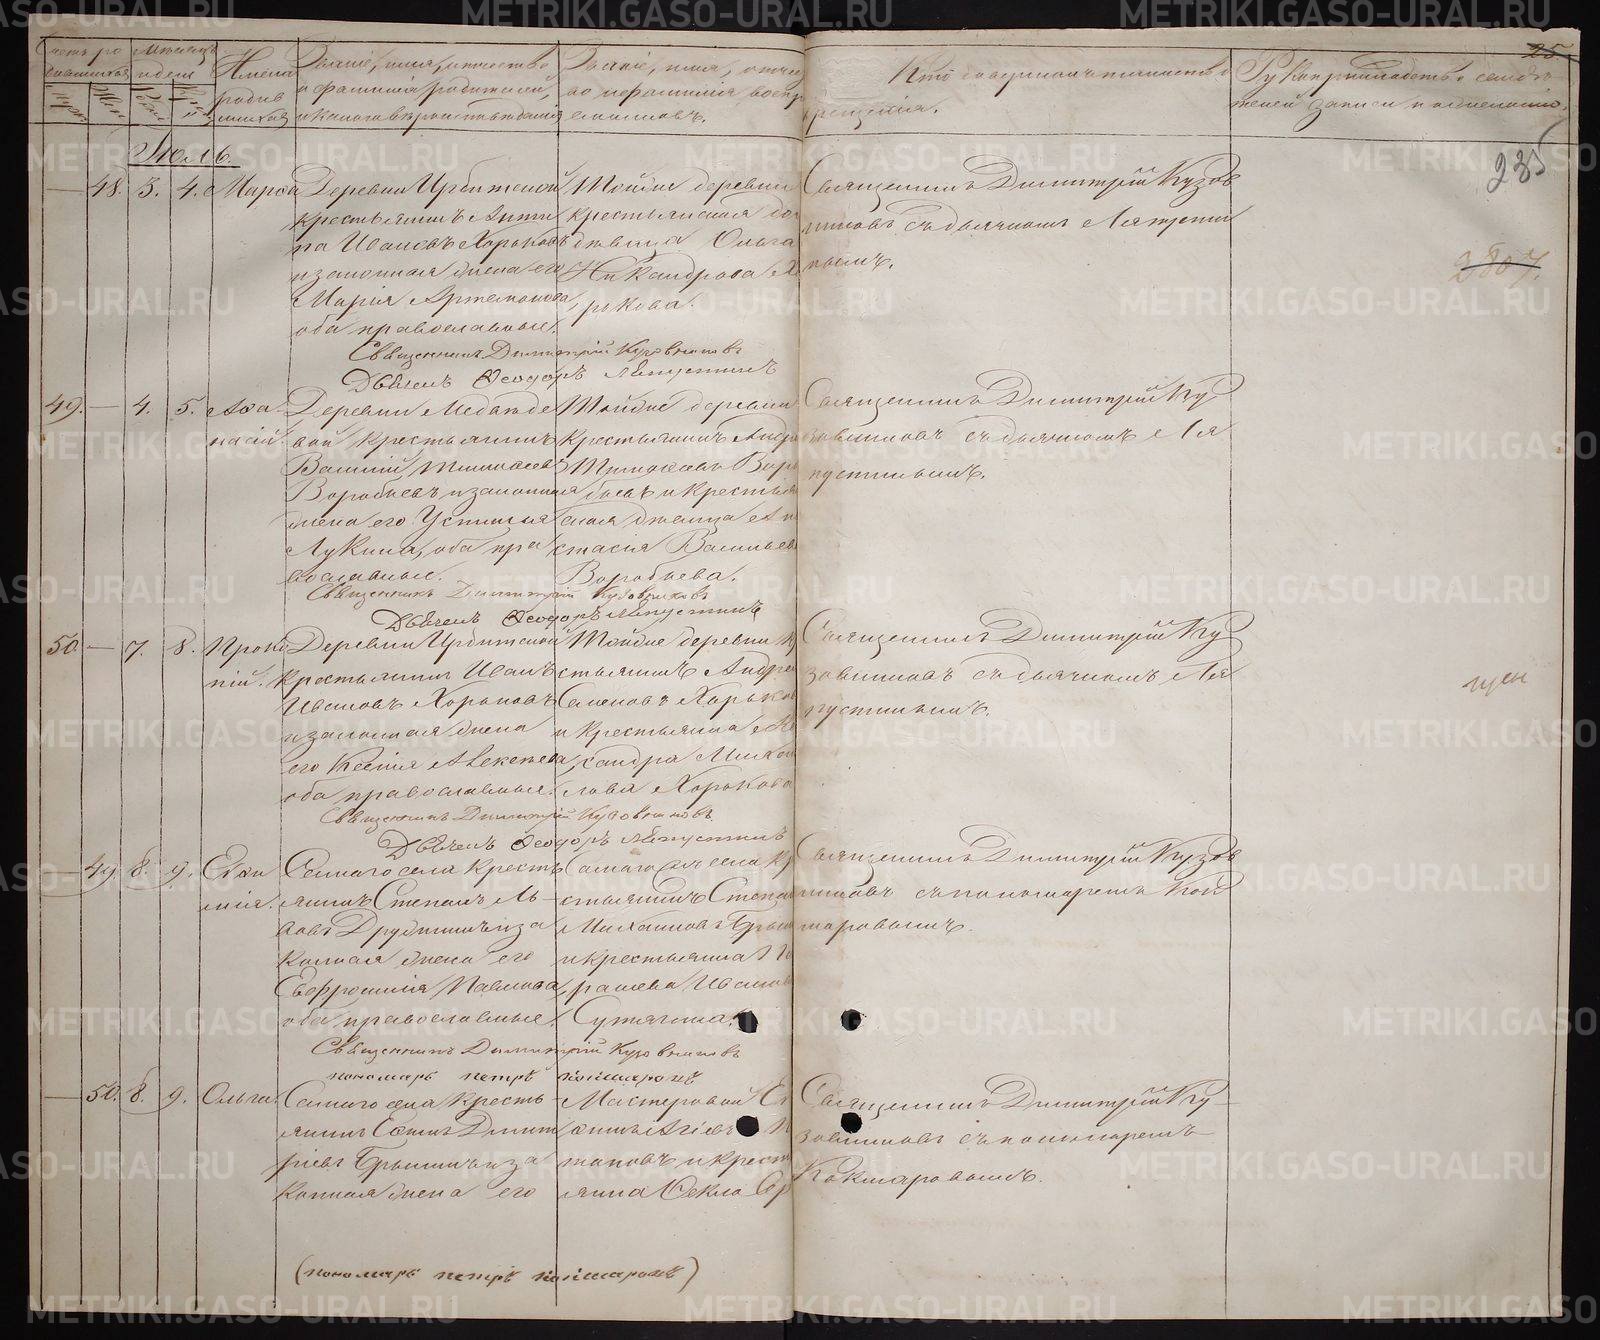 25
Счетъ ро
дившихся
Мѣсяцъ
и день
Имена
родив
шихся
Званіе, имя, отчество
и фамилія родителей,
и какого вѣроисповѣданія
Званіе, имя, отче
во и фамилія воспр
емниковъ.
Кто совершалъ таинство
крещенія.
Рукоприкладство свидѣ
телей записи по желанію.
Іюль.
235
48. 3. 4. Марѳа
Деревни Ирбитской
крестьянинъ Анти
па Ивановъ Хорьковъ
и законная жена его
Марія Артемонова,
оба православные.
Тойже деревни
крестьянская до
дѣвица Ольга
Никандрова Х
рькова.
Священникъ Димитрій Кузов
никовъ съ дьячкомъ Ляпусти
нымъ.
2807.
Священникъ Димитрій Кузовниковъ
Дьячекъ Ѳеодоръ Ляпустинъ
49. — 4. 5. Аѳа
насій
Деревни Медвѣде
вой крестьянинъ
Василій Тимоѳеевъ
Воробьевъ и законная
жена его Устинья
Лукина, оба пра
вославные.
Тойже деревни
крестьянинъ Андре
Тимоѳеевъ Вор
бьевъ и крестья
ская дѣвица Ан
стасія Васильев
Воробьева.
Священникъ Димитрій Ку
зовниковъ съ дьячкомъ Ля
пустинымъ.
Священникъ Димитрій Кузовниковъ
Дьячекъ Ѳеодоръ Ляпустинъ
50 — 7. 8. Проко
пій.
Деревни Ирбитской
крестьянинъ Иванъ
Ивановъ Хорьковъ
и законная жена
его Ксенія Алексѣева,
оба православные.
Тойже деревни кр
стьянинъ Андре
Семеновъ Хорько
и крестьянка
сандра Михаи
лова Хорькова
Священникъ Димитрій Ку
зовниковъ съ дьячкомъ Ля
пустинымъ.
Священникъ Димитрій Кузовниковъ
Дьячекъ Ѳеодоръ Ляпустинъ
— 49 8. 9. Евѳи
мія.
Самаго села кресть
янинъ Степанъ Ль
вовъ Друбининъ и за
конная жена его
Евфросинія Павлова,
оба православные.
Самаго же села кр
стьянинъ Степан
Михаиловъ
и крестьянка
расева Иванов
Сутягина.
Священникъ Димитрій Кузов
никовъ съ пономаремъ Кок
шаровымъ.
Священникъ Димитрій Кузовниковъ
пономарь Петръ Кокшаровъ
— 50. 8. 9. Ольга.
Самаго села кресть
янинъ Димит
ріевъ и за
конная жена его
Мастеровой
и крест
янка Ѳекла
Священникъ Димитрій Ку
зовниковъ съ пономаремъ
Кокшаровымъ.
(пономарь Петръ Кокшаровъ)
METRIKI.GASO-URAL.RU